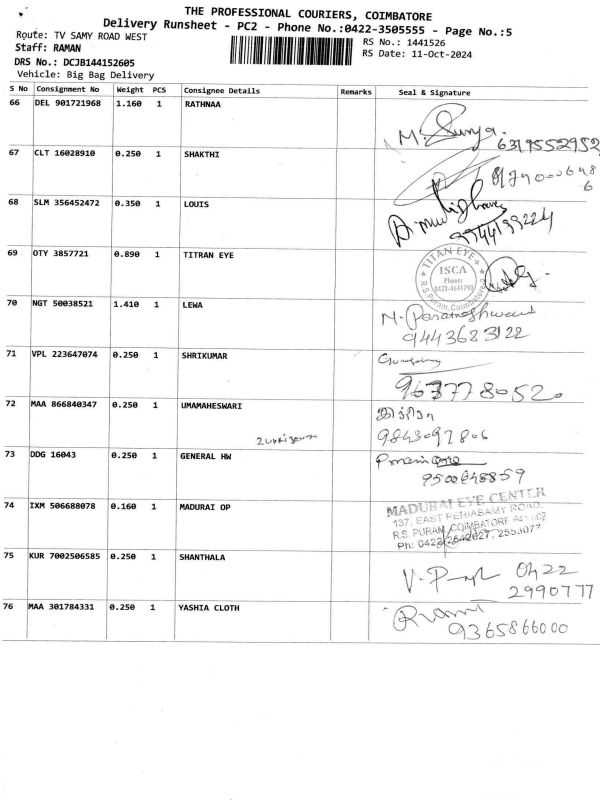 THE PROFESSIONAL COURIERS, COIMBATORE
Delivery Runsheet - PC2 - Phone No.:0422-3505555 - Page No.:5
Route: TV SAMY ROAD WEST
RS No.: 1441526
Staff: RAMAN
RS Date: 11-Oct-2024
DRS No.: DCJB144152605
Vehicle: Big Bag Delivery
S No Consignment No Weight PCS Consignee Details Remarks Seal & Signature
66 DEL 901721968 1.160 1 RATHNAA
M. Surya. 6379552952
67 CLT 16028910 0.250 1 SHAKTHI
68 SLM 356452472 0.350 1 LOUIS
69 OTY 3857721 0.890 1 TITRAN EYE
TITAN EYE+
ISCA
Phone:
0422-4641790
R.S Puram, Coimbatore-2
70 NGT 50038521 1.410 1 LEWA
9443683122
71 VPL 223647074 0.250 1 SHRIKUMAR
9677778052.
72 MAA 866840347 0.250 1 UMAMAHESWARI
9843097806
73 DDG 16043 0.250 1 GENERAL HW
9500648859
74 IXM 506688078 0.160 1 MADURAI OP
MADURAI EYE CENTER
137, EAST PERIASAMY ROAD,
R.S. PURAM, COIMBATORE 641 002
Ph: 0422-2542627, 2553077
75 KUR 7002506585 0.250 1 SHANTHALA
0422
2990777
76 MAA 301784331 0.250 1 YASHIA CLOTH
9365866000